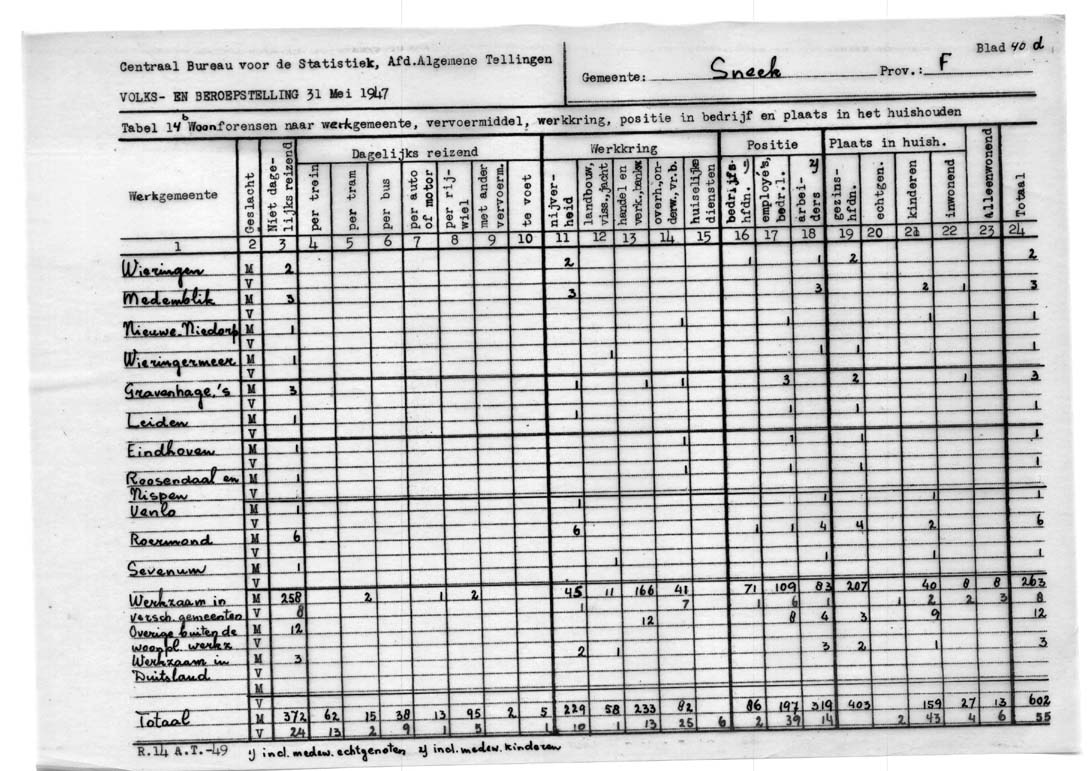 Blad 40 d
Centraal Bureau voor de Statistiek, Afd.Algemene Tellingen
Gemeente: Sneek Prov.: F
VOLKS- EN BEROEPSTELLING 31 Mei 1947
Tabel 14b Woonforensen naar werkgemeente, vervoermiddel, werkkring, positie in bedrijf en plaats in het huishouden
Werkgemeente
Geslacht
Niet dage-
lijks reizend
Dagelijks reizend
per trein
per tram
per bus
per auto
of motor
per rij-
wiel
met ander
vervoerm.
te voet
Werkkring
nijver-
heid
landbouw,
viss.,jacht
handel en
verk.,bankw.
overh.,on-
derw.,vr.b.
huiselijke
diensten
Positie
bedrijfs- 1)
hfdn.
employé's,
bedr.l.
arbei- 2)
ders
Plaats in huish.
gezins-
hfdn.
echtgen.
kinderen
inwonend
Alleenwonend
Totaal
1 2 3 4 5 6 7 8 9 10 11 12 13 14 15 16 17 18 19 20 21 22 23 24
Wieringen M 2 2 1 1 2 2
V
Medemblik M 3 3 3 2 1 3
V
Nieuwe-Niedorp M 1 1 1 1 1
V
Wieringermeer M 1 1 1 1 1
V
Gravenhage,'s M 3 1 1 1 3 2 1 3
V
Leiden M 1 1 1 1 1
V
Eindhoven M 1 1 1 1 1
V
Roosendaal en M 1 1 1 1 1
Nispen V
Venlo M 1 1 1 1 1
V
Roermond M 6 6 1 1 4 4 2 6
V
Sevenum M 1 1 1 1 1
V
Werkzaam in M 258 2 1 2 45 11 166 41 71 109 83 207 40 8 8 263
versch. gemeenten V 8 1 7 1 6 1 1 2 2 3 8
Overige buiten de M 12 12 8 4 3 9 12
woonpl. werkz V
Werkzaam in M 3 2 1 3 2 1 3
Duitsland V
M
V
Totaal M 372 62 15 38 13 95 2 5 229 58 233 82 86 197 319 403 159 27 13 602
V 24 13 2 9 1 5 1 10 1 13 25 6 2 39 14 2 43 4 6 55
R.14 A.T.-49 1) incl. medew. echtgenoten 2) incl. medew. kinderen